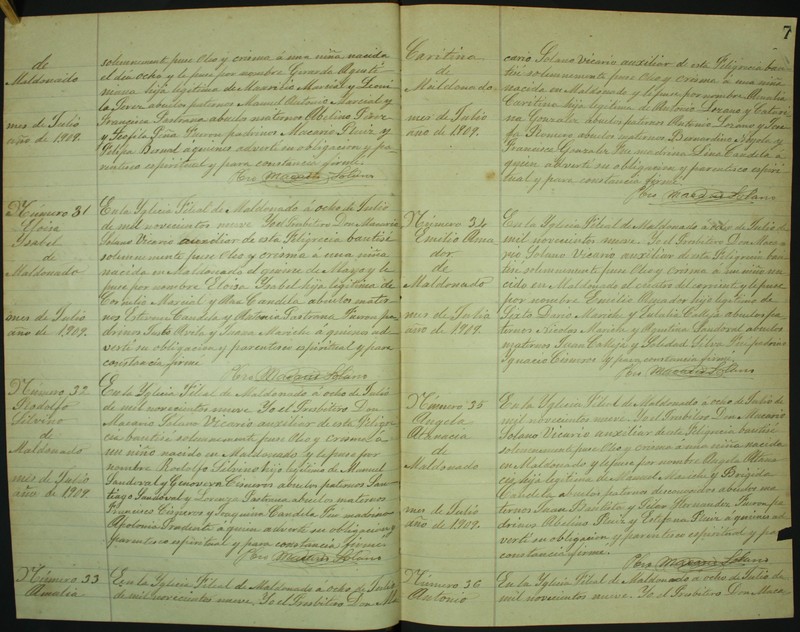 de
Maldonado
mes de Julio
año de 1909.
solemnemente puse Oleo y crisma á una niña nacida
el dia ocho y le puse por nombre Gerarda
hija legitima de Marcial y
abuelos paternos Manuel Antonio Marcial y
Francisca Pastrana abuelos maternos Abelino
y Teofila Piña Fueron padrinos Macario Ruiz y
Felipa Bernal á quienes advertí su obligacion y pa-
rentesco espiritual y para constancia firmé.
Pbro Macario Solano
Número 31
Eloisa
Ysabel
de
Maldonado
mes de Julio
año de 1909.
En la Yglecia Filial de Maldonado á ocho de Julio
de mil novecientos nueve Yo el Presbitero Don Macario
Solano Vicario auxiliar de esta Feligrecia bautisé
solemnemente puse Oleo y crisma á una niña
nacida en Maldonado el quince de Mayo y le
puse por nombre Eloisa Ysabel hija legitima de
Marcial y Candela abuelos mater-
nos Candela y Pastrana Fueron pa-
drinos Justo Avila y Juana Mariche á quienes ad-
vertí su obligacion y parentesco espiritual y para
constancia firmé
Pbro Macario Solano
Número 32
Rodolfo
Silvino
de
Maldonado
mes de Julio
año de 1909
En la Yglecia Filial de Maldonado á ocho de Julio
de mil novecientos nueve Yo el Presbitero Don
Macario Solano Vicario auxiliar de esta Feligre-
cia bautise solemnemente puse Oleo y crisma á
un niño nacido en Maldonado y le puse por
nombre Rodolfo Silvino hijo legitimo de Manuel
Sandoval y Genoveva Cisneros abuelos paternos San-
tiago Sandoval y Lorenza Pastrana abuelos maternos
Francisco Cisneros y Joaquina Candela Fue madrina
Apolonia Prudente á quien advertí su obligacion y
parentesco espiritual y para constancia firmé
Pbro Macario Solano
Número 33
Amalia
En la Yglecia Filial de Maldonado á ocho de Julio
de mil novecientos nueve. Yo el Presbitero Don Ma
7
Caritina
de
Maldonado
mes de Julio
año de 1909.
cario Solano Vicario auxiliar de esta Feligrecia bau-
tise solemnemente puse Oleo y crisma á una niña
nacida en Maldonado y le puse por nombre Amalia
Caritina hija legitima de Antonio Lozano y Catari-
na Gonzalez abuelos paternos Antonio Lozano y
Romero abuelos maternos Bernardino y
Francisca Gonzalez Fue madrina Candela á
quien advertí su obligacion y parentesco espiri-
tual y para constancia firmé.
Pbro Macario Solano
Número 34
Emilio Ama
dor
de
Maldonado
mes de Julio
año de 1909.
En la Yglecia Filial de Maldonado á ocho de Julio de
mil novecientos nueve. Yo el Presbitero Don Maca-
rio Solano Vicario auxiliar de esta Feligrecia bau-
tise solemnemente puse Oleo y crisma á un niño na-
cido en Maldonado el cuatro del corriente y le puse
por nombre Emilio Amador hijo legitimo de
Sixto Mariche y Eulalia Calleja abuelos pa-
ternos Nicolas Mariche y Agustina Sandoval abuelos
maternos Juan Calleja y Soledad Silva Fue padrino
Ygnacio Cisneros y para constancia firmé.
Pbro Macario Solano
Número 35
Angela
Atanacia
de
Maldonado
mes de Julio
año de 1909.
En la Yglecia Filial de Maldonado á ocho de Julio de
mil novecientos nueve. Yo el Presbitero Don Macario
Solano Vicario auxiliar de esta Feligrecia bautisé
solemnemente puse Oleo y crisma á una niña nacida
en Maldonado y le puse por nombre Angela Atana-
cia hija legitima de Manuel Mariche y Brigida
Candela abuelos paternos desconocidos abuelos ma-
ternos Juan Bautista y Pilar Hernandez Fueron pa-
drinos Abelino Ruiz y Ruiz á quienes ad-
vertí su obligacion y parentesco espiritual y pa
constancia firmé.
Pbro Macario Solano
Número 36
Antonio
En la Yglecia Filial de Maldonado á ocho de Julio de
mil novecientos nueve. Yo el Presbitero Don Maca-